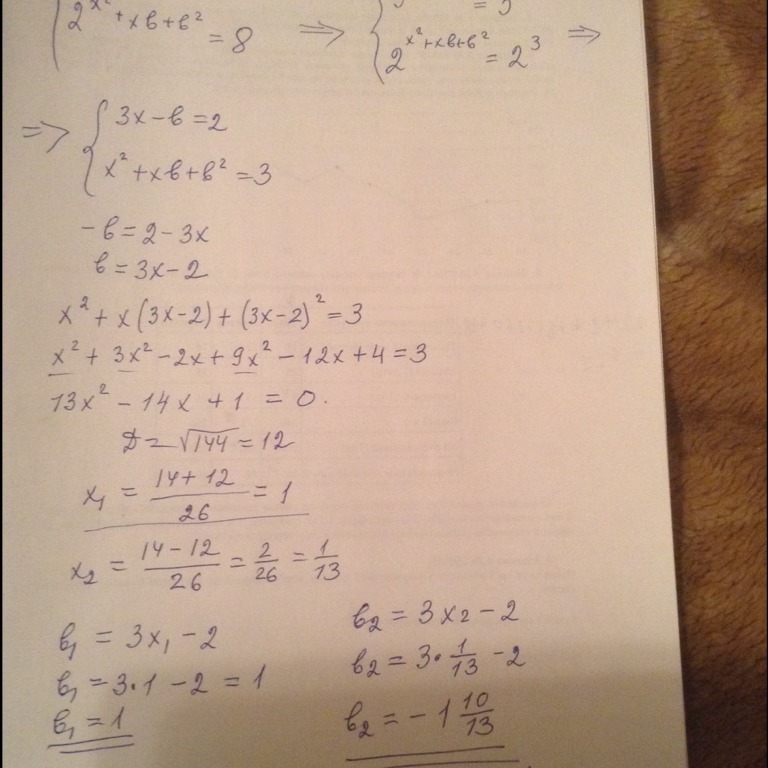 2^{x²+xв+в²} = 8 => 2^{x²+xв+в²} = 2³ =>
=> { 3x - в = 2
x² + xв + в² = 3
-в = 2 - 3x
в = 3x - 2
x² + x(3x-2) + (3x-2)² = 3
x² + 3x² - 2x + 9x² - 12x + 4 = 3
13x² - 14x + 1 = 0.
D = √144 = 12
x₁ = (14+12)/26 = 1
x₂ = (14-12)/26 = 2/26 = 1/13
в₁ = 3x₁ - 2
в₁ = 3·1 - 2 = 1
в₁ = 1
в₂ = 3x₂ - 2
в₂ = 3·1/13 - 2
в₂ = -1 10/13